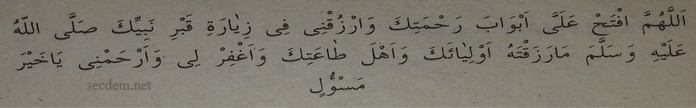 اَللّٰهُمَّ افْتَحْ عَلَىَّ اَبْوَابَ رَحْمَتِكَ وَارْزُقْنِى فِى زِيَارَةِ قَبْرِ نَبِيِّكَ صَلَّى اللّٰهُ
عَلَيْهِ وَسَلَّمَ مَارَزَقْتَهُ اَوْلِيَائَكَ وَاَهْلَ طَاعَتِكَ وَاغْفِرْ لِى وَارْحَمْنِى يَاخَيْرَ
مَسْؤُلٍ
secdem.net